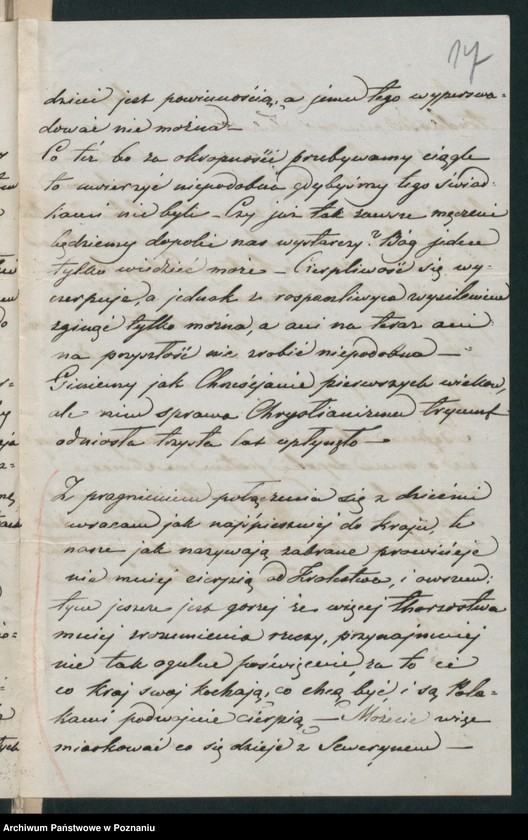 17
dzieci jest powinnością, a jemu tego wyperswa-
dować nie można –
Co też bo za okropność przebywamy ciągle
to uwierzyć niepodobna gdybyśmy tego świad-
kami nie byli – Czy już tak zawsze męczeni
będziemy dopóki nas wystarczy? Bóg jeden
tylko wiedzieć może – Cierpliwość się wy-
czerpuje, a jednak z rozpaczliwym wysileniem
zginąć tylko można, a ani na teraz ani
na przyszłość nic zrobić niepodobna –
Giniemy jak Chrześcjanie pierwszych wieków,
ale nim sprawa Chrystianizmu tryumf
odniosła trzysta lat upłynęło –
Z pragnieniem połączenia się z dziećmi
wracam jak najspieszniej do kraju, te
nasze jak nazywają zabrane prowincje
nie mniej cierpią od Królestwa, i owszem;
tym jeszcze jest gorzej że więcej tchórzostwa
mniej zrozumienia rzeczy, przynajmniej
nie tak ogólne poświęcenie, za to ce
co kraj swój kochają, co chcą być i są Pola-
kami podwójnie cierpią – Możecie więc
miarkować co się dzieje z Sewerynem –
Archiwum Państwowe w Poznaniu